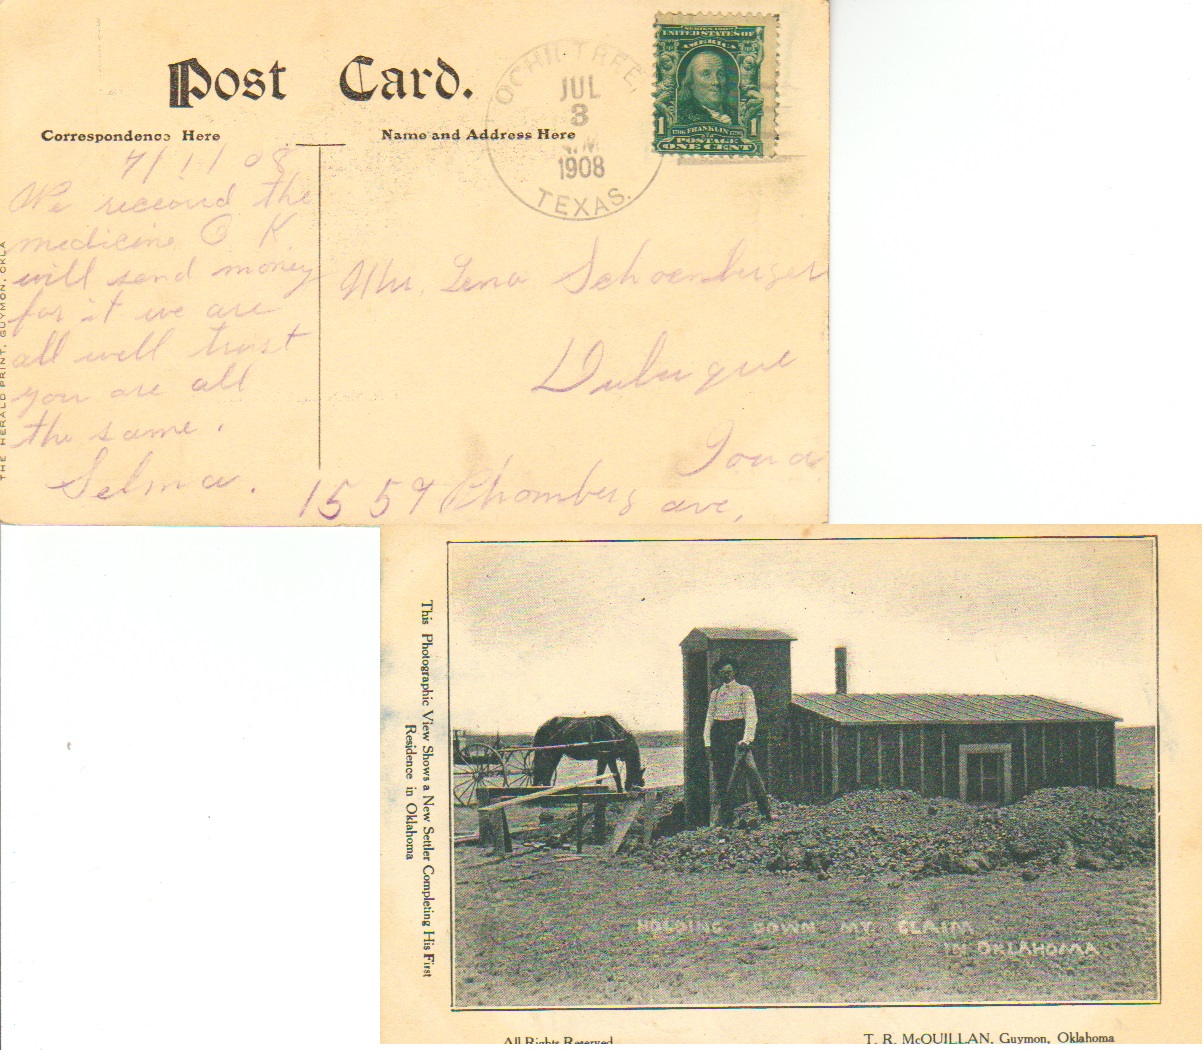 Post Card.
Correspondence Here
Name and Address Here
OCHILTREE,
JUL
3
M
1908
TEXAS.
SERIES 1902
UNITED STATES OF
AMERICA
1706 FRANKLIN 1790
1 1
POSTAGE
ONE CENT
7/1/08
We received the
medicine O K.
will send money
for it we are
all well trust
you are all
the same.
Selma.
Mrs. Lena Schoenberger
Dubuque
Iowa
1557 Rhomberg ave,
THE HERALD PRINT, GUYMON, OKLA
This Photographic View Shows a New Settler Completing His First
Residence in Oklahoma
HOLDING DOWN MY CLAIM
IN OKLAHOMA
All Rights Reserved
T. R. McQUILLAN, Guymon, Oklahoma